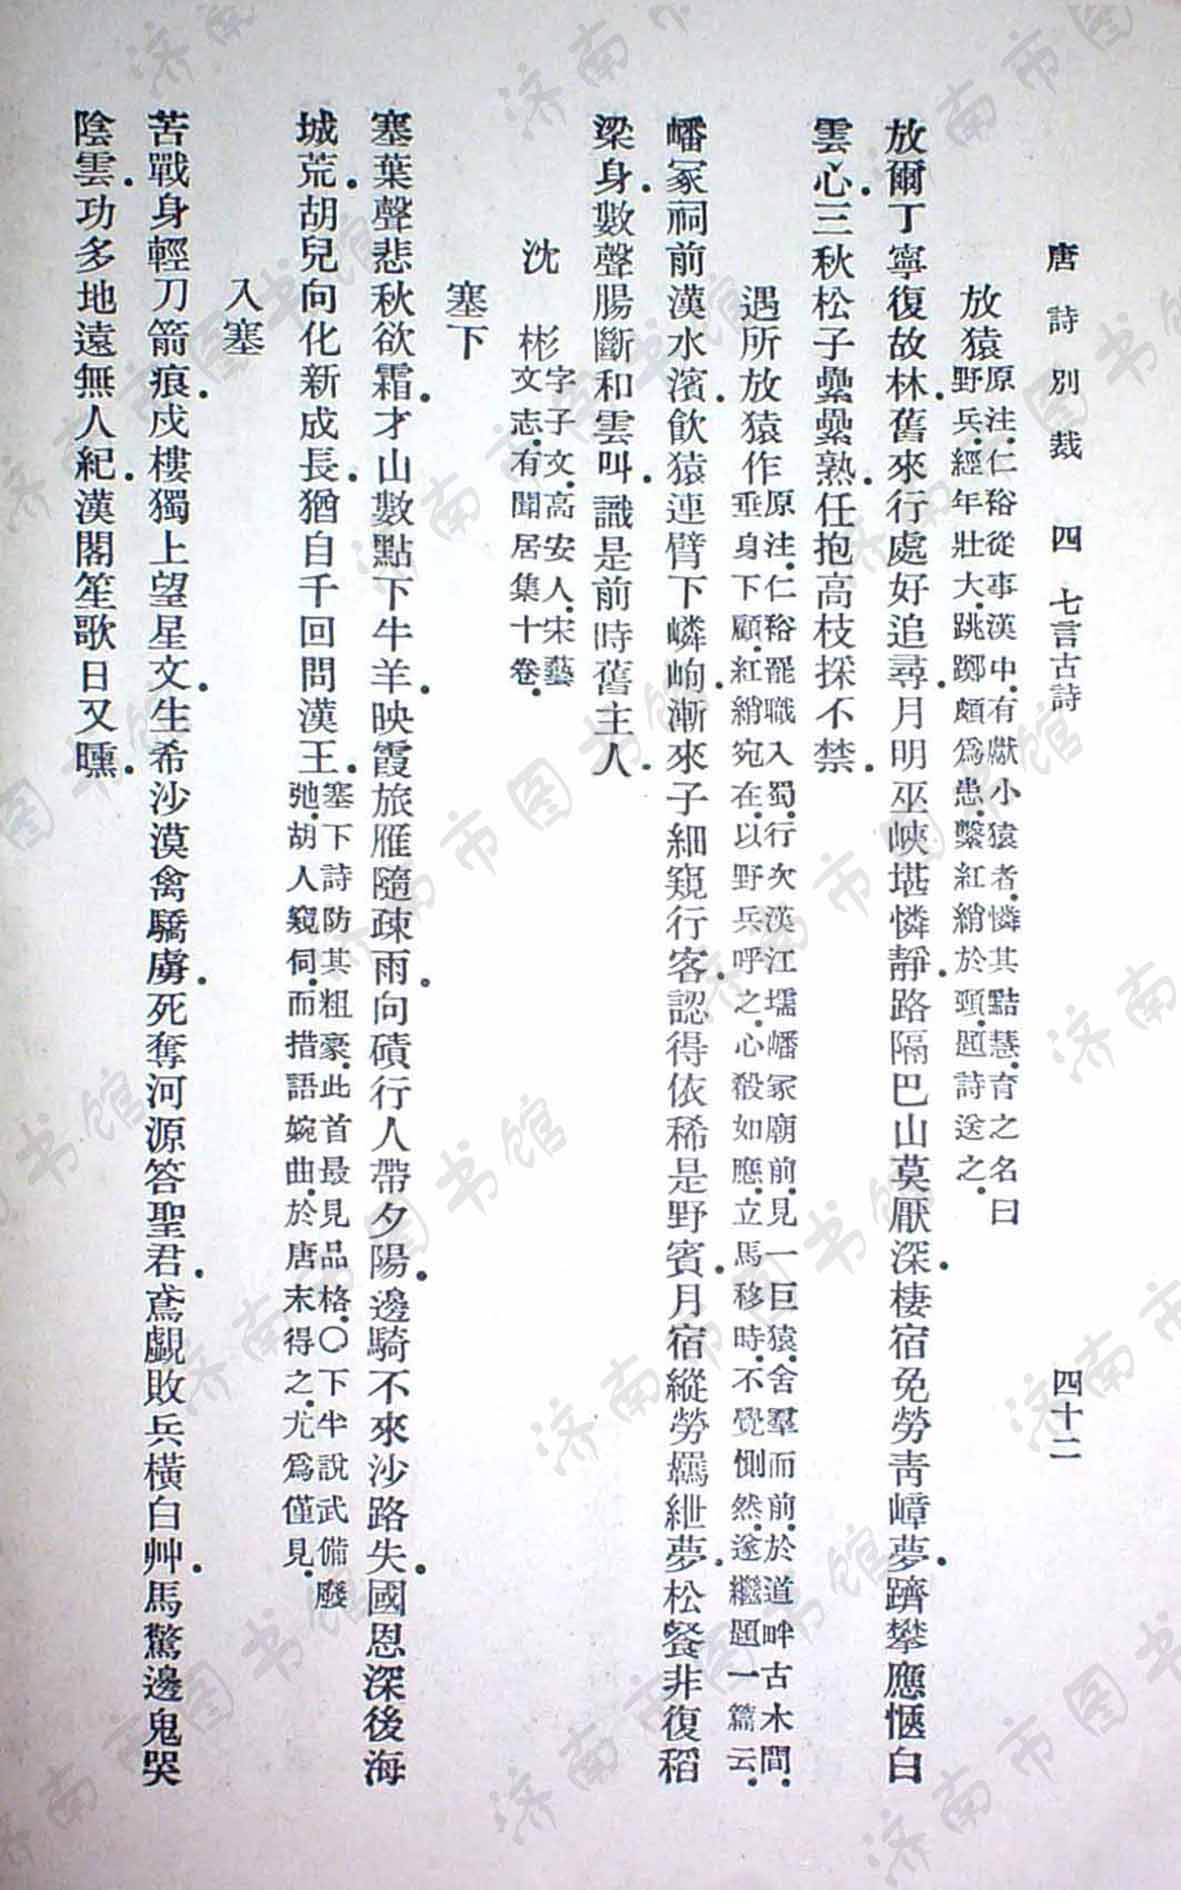 唐詩別裁　四　七言古詩　四十二
放猿原注.仁裕從事漢中.有獻小猿者.憐其黠慧.育之名曰
野兵.經年壯大.跳躑頗爲患.繫紅綃於頸.題詩送之.
放爾丁寧復故林.舊來行處好追尋.月明巫峽堪憐靜.路隔巴山莫厭深.棲宿免勞靑嶂夢.躋攀應愜白
雲心.三秋松子纍纍熟.任抱高枝採不禁.
遇所放猿作原注.仁裕罷職入蜀.行次漢江壖嶓冢廟前.見一巨猿.舍羣而前.於道畔古木間.
垂身下顧.紅綃宛在.以野兵呼之.心殺如應.立馬移時.不覺惻然.遂繼題一篇云.
嶓冢祠前漢水濱.飮猿連臂下嶙峋.漸來子細窺行客.認得依稀是野賓.月宿縱勞羈紲夢.松餐非復稻
梁身.數聲腸斷和雲叫.識是前時舊主人.
沈　彬字子文.高安人.宋藝
文志.有聞居集十卷.
塞下
塞葉聲悲秋欲霜.才山數點下牛羊.映霞旅雁隨疎雨.向磧行人帶夕陽.邊騎不來沙路失.國恩深後海
城荒.胡兒向化新成長.猶自千回問漢王.塞下詩防其粗豪.此首最見品格.〇下半說武備廢
弛.胡人窺伺.而措語婉曲.於唐末得之.尤爲僅見.
入塞
苦戰身輕刀箭痕.戍樓獨上望星文.生希沙漠禽驕虜.死奪河源答聖君.鳶覷敗兵橫白艸.馬驚邊鬼哭
陰雲.功多地遠無人紀.漢閣笙歌日又曛.